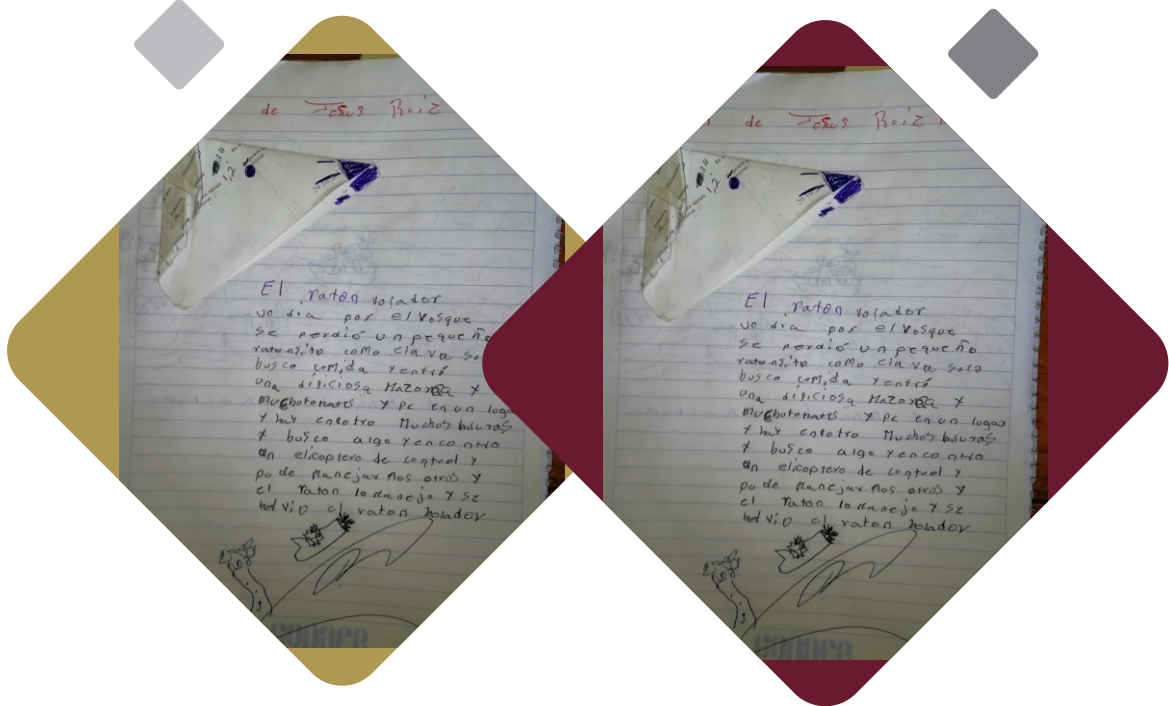 de Jesus Ruiz
1,2
El raton volador
un dia por el vosque
se perdió un pequeño
ratonsito como cia va so
busco comida y entró
una diliciosa Mazorca y
muchotomates y pc en un logar
y hay enlotro Muchos basuras
y busco algo y enco ntro
un elicoptero de control y
po de manejar nos otros y
el raton lo manejo y se
bol vio el raton bolador
CONAFE
de Jesus Ruiz
1,2
El raton volador
un dia por el vosque
se perdió un pequeño
ratonsito como cia va solo
busco comida y entró
una diliciosa Mazorca y
muchotomates y pc en un logar
y hay enlotro Muchos basuras
y busco algo y enco ntro
un elicoptero de control y
po de manejar nos otros y
el raton lo manejo y se
bol vio el raton bolador
CONAFE